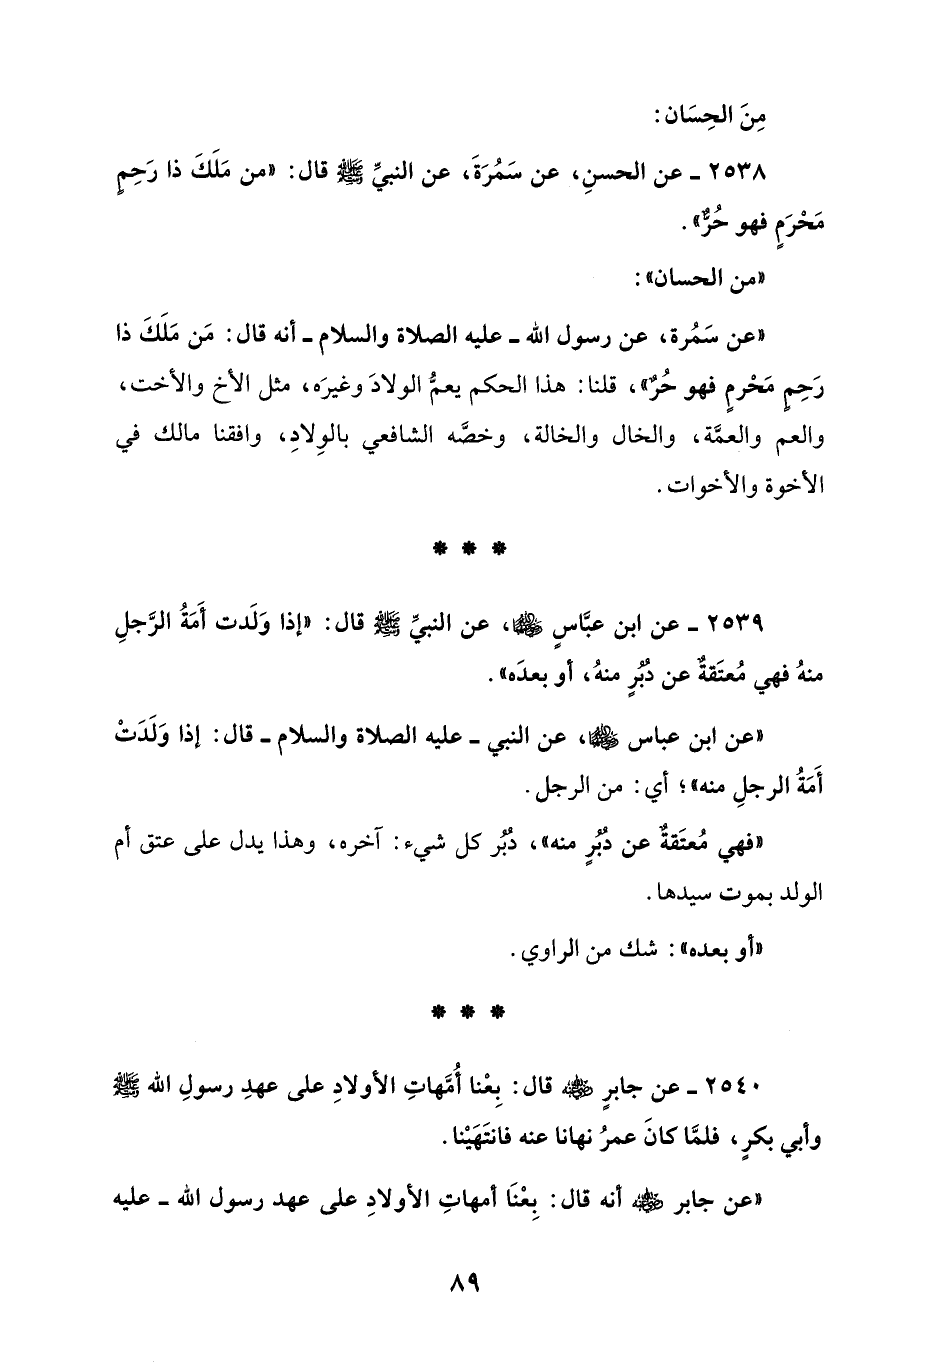 مِنَ الحِسَان:
٢٥٣٨ ـ عن الحسنِ، عن سَمُرَةَ، عن النبيِّ ﷺ قال: «من مَلَكَ ذا رَحِمٍ
مَحْرَمٍ فهو حُرٌّ».
«من الحسان»:
«عن سَمُرة، عن رسول الله ـ عليه الصلاة والسلام ـ أنه قال: مَن مَلَكَ ذا
رَحِمٍ مَحْرمٍ فهو حُرٌ»، قلنا: هذا الحكم يعمُّ الولادَ وغيرَه، مثل الأخ والأخت،
والعم والعمَّة، والخال والخالة، وخصَّه الشافعي بالوِلادِ، وافقنا مالك في
الأخوة والأخوات.
* * *
٢٥٣٩ ـ عن ابن عبَّاسٍ ﵄، عن النبيِّ ﷺ قال: «إذا وَلَدت أَمَةُ الرَّجلِ
منهُ فهي مُعتَقةٌ عن دُبُرٍ منهُ، أو بعدَه».
«عن ابن عباس ﵄، عن النبي ـ عليه الصلاة والسلام ـ قال: إذا وَلَدَتْ
أَمَةُ الرجلِ منه»؛ أي: من الرجل.
«فهي مُعتَقةٌ عن دُبُرٍ منه»، دُبُر كل شيء: آخره، وهذا يدل على عتق أم
الولد بموت سيدها.
«أو بعده»: شك من الراوي.
* * *
٢٥٤٠ ـ عن جابرٍ ﵁ قال: بِعْنا أُمَّهاتِ الأولادِ على عهدِ رسولِ الله ﷺ
وأبي بكرٍ، فلمَّا كانَ عمرُ نهانا عنه فانتَهَيْنا.
«عن جابر ﵁ أنه قال: بِعْنَا أمهاتِ الأولادِ على عهد رسول الله ـ عليه
٨٩